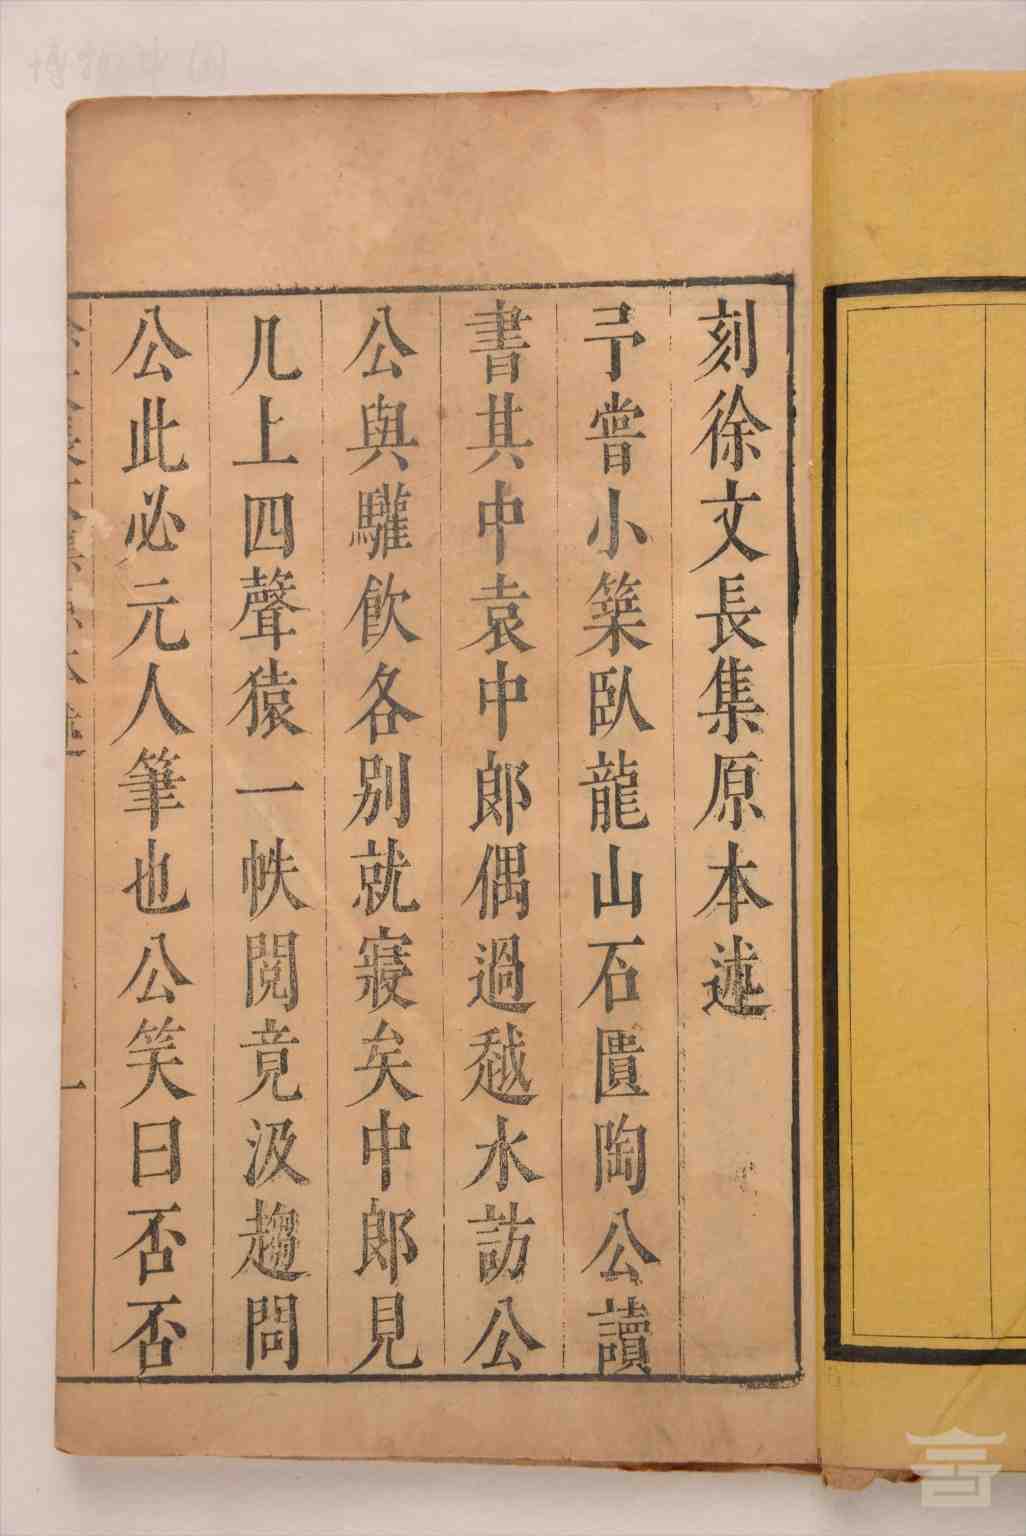 刻徐文長集原本述
予嘗小築臥龍山石匱陶公讀
書其中袁中郎偶過越水訪公
公與驩飮各别就寢矣中郎見
几上四聲猿一帙閱竟汲趨問
公此必元人筆也公笑曰否否
一